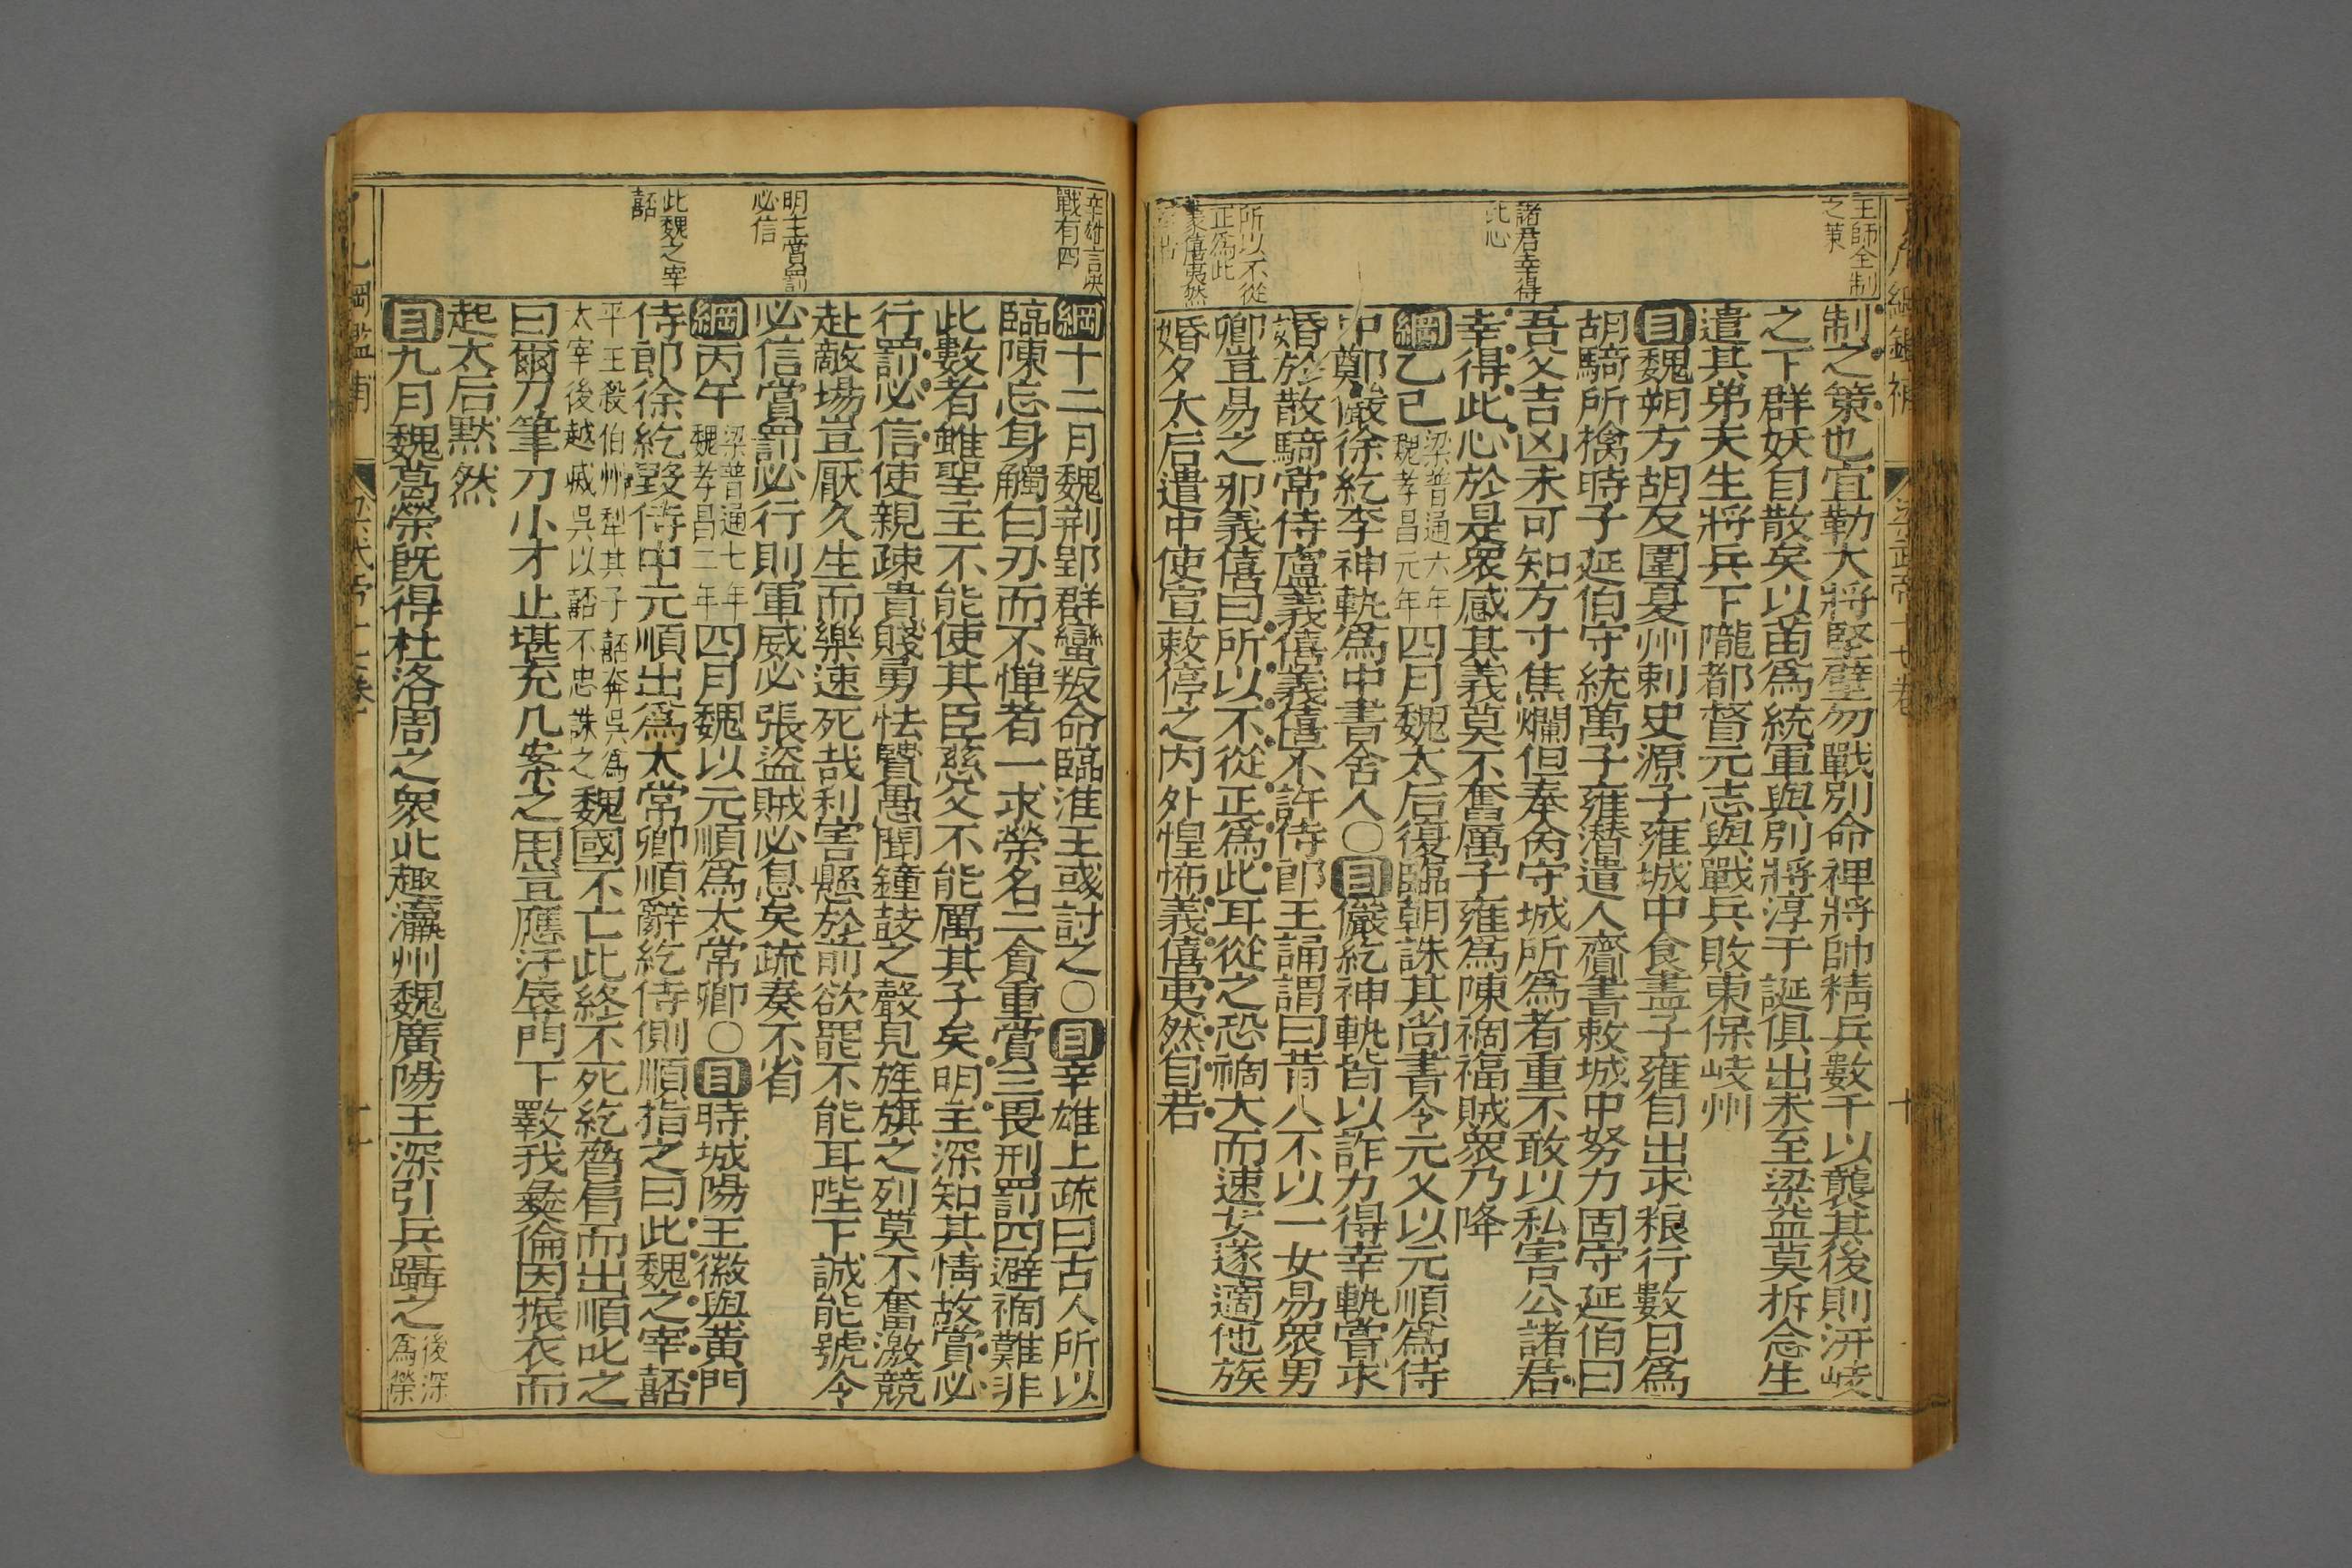 王師全制
之策
諸君幸得
此心
所以不從
正爲此
義僖夷然
制之策也宜勒大將堅壁勿戰別命裨將帥精兵數千以襲其後則汧岐
之下群妖自散矣以苗爲統軍與別將淳于誕俱出未至梁益莫折念生
遣其弟天生將兵下隴都督元志與戰兵敗東保岐州
目魏朔方胡反圍夏州刺史源子雍城中食盡子雍自出求粮行數日爲
胡騎所擒時子延伯守統萬子雍潜遣人齎書敕城中努力固守延伯曰
吾父吉凶未可知方寸焦爛但奉命守城所爲者重不敢以私害公諸君
幸得此心於是衆感其義莫不奮厲子雍爲陳禍福賊衆乃降
綱乙巳梁普通六年魏孝昌元年四月魏太后復臨朝誅其尚書令元义以元順爲侍
中鄭儼徐紇李神軌爲中書舍人○目儼紇神軌皆以詐力得幸軌嘗求
婚於散騎常侍盧義僖義僖不許侍郎王誦謂曰昔人不以一女易衆男
卿豈易之邪義僖曰所以不從正爲此耳從之恐禍大而速女遂適他族
婚夕太后遣中使宣敕停之内外惶怖義僖夷然自若
辛雄言決
戰有四
明主賞罰
必信
此魏之宰
嚭
綱十二月魏荆郢群蠻叛命臨淮王彧討之○目辛雄上疏曰古人所以
臨陳忘身觸白刃而不憚者一求榮名二貪重賞三畏刑罰四避禍難非
此數者雖聖主不能使其臣慈父不能厲其子矣明主深知其情故賞必
行罰必信使親疎貴賤勇怯賢愚聞鐘鼓之聲見旌旗之列莫不奮激競
赴敵場豈厭久生而樂速死哉利害懸於前欲罷不能耳陛下誠能號令
必信賞罰必行則軍威必張盜賊必息矣疏奏不省
綱丙午梁普通七年魏孝昌二年四月魏以元順爲太常卿○目時城陽王徽與黄門
侍郎徐紇毀侍中元順出爲太常卿順辭紇侍側順指之曰此魏之宰嚭
平王殺伯州犁其子嚭奔吳爲太宰後越㓕吳以嚭不忠誅之魏國不亡此終不死紇脅肩而出順叱之
曰爾刀筆刀小才止堪充几案之用豈應汙辱門下斁我彜倫因振衣而
起太后默然
目九月魏葛榮旣得杜洛周之衆北趣瀛州魏廣陽王深引兵躡之後深爲榮